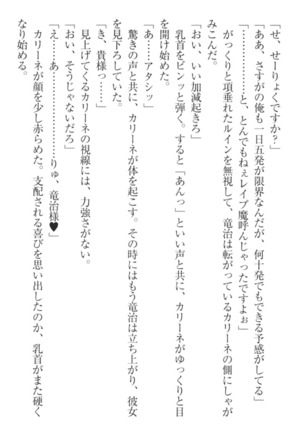 「せ、せーりょくですか？」
「ああ、さすがの俺も一日五発が限界なんだが、何十発でもできる予感がしてる」
「…………と、とんでもねぇレイプ魔呼んじゃったですよぉ」
がっくりと項垂れたルインを無視して、竜治は転がっているカリーネの側にしゃが
みこんだ。
「おい、いい加減起きろ」
乳首をピンッと弾く。すると「あんっ」といい声と共に、カリーネがゆっくりと目
を開け始めた。
「あ……アタシッ」
驚きの声と共に、カリーネが体を起こす。その時にはもう竜治は立ち上がり、彼女
を見下ろしていた。
「き、貴様っ……」
見上げてくるカリーネの視線には、力強さがない。
「おい、そうじゃないだろ」
「え……あ…………りゅ、竜治様♥」
カリーネが顔を少し赤らめた。支配される喜びを思い出したのか、乳首がまた硬く
なり始める。